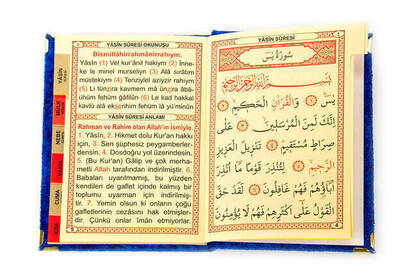 YÂSÎN SÛRESİ OKUNUŞU
Bismillâhirrahmânirrahıym.
Yâsîn (1) Vel kur'ânil hakiym (2) İnne-
ke le minel murseliyn (3) Alâ sırâtım
müstekıym (4) Tenziylel aziyzir rahıym
(5) Li tünzira kavmem mâ ünzira âbâ-
ühüm fehüm ğâfilûn (6) Le kad hakkal
kavlü alâ ekserihim fehüm lâ yü'minûn
YÂSÎN SÛRESİ ANLAMI
Rahman ve Rahim olan Allah'ın İsmiyle.
1. Yâsîn, 2. Hikmet dolu Kur'an hakkı
için, 3. Sen şüphesiz peygamberler-
densin. 4. Dosdoğru yol üzerindesin.
5. (Bu Kur'an) Gâlip ve çok merha-
metli Allah tarafından indirilmiştir. 6.
Babaları uyarılmamış, bu yüzden
kendileri de gaflet içinde kalmış bir
toplumu uyarman için indirilmiş-
tir. 7. Yemin olsun ki onların çoğu
gafletlerinin cezâsını hak etmişler-
dir. Çünkü onlar îman etmiyorlar.
5
YÂSÎN
MÜLK
NEBE
CUMA
YÂSÎN SÛRESİ
سُورَةُ يٰسٓ
بِسْمِ اللّٰهِ الرَّحْمٰنِ الرَّحِيمِ
يٰسٓ ﴿١﴾ وَالْقُرْاٰنِ الْحَكِيمِ ﴿٢﴾
اِنَّكَ لَمِنَ الْمُرْسَلِينَ ﴿٣﴾ عَلٰى
صِرَاطٍ مُسْتَقِيمٍ ﴿٤﴾ تَنْزِيلَ الْعَزِيزِ
الرَّحِيمِ ﴿٥﴾ لِتُنْذِرَ قَوْمًا مَٓا اُنْذِرَ
اٰبَٓاؤُ۬هُمْ فَهُمْ غَافِلُونَ ﴿٦﴾ لَقَدْ حَقَّ
الْقَوْلُ عَلٰٓى اَكْثَرِهِمْ فَهُمْ لَا يُؤْمِنُونَ
4